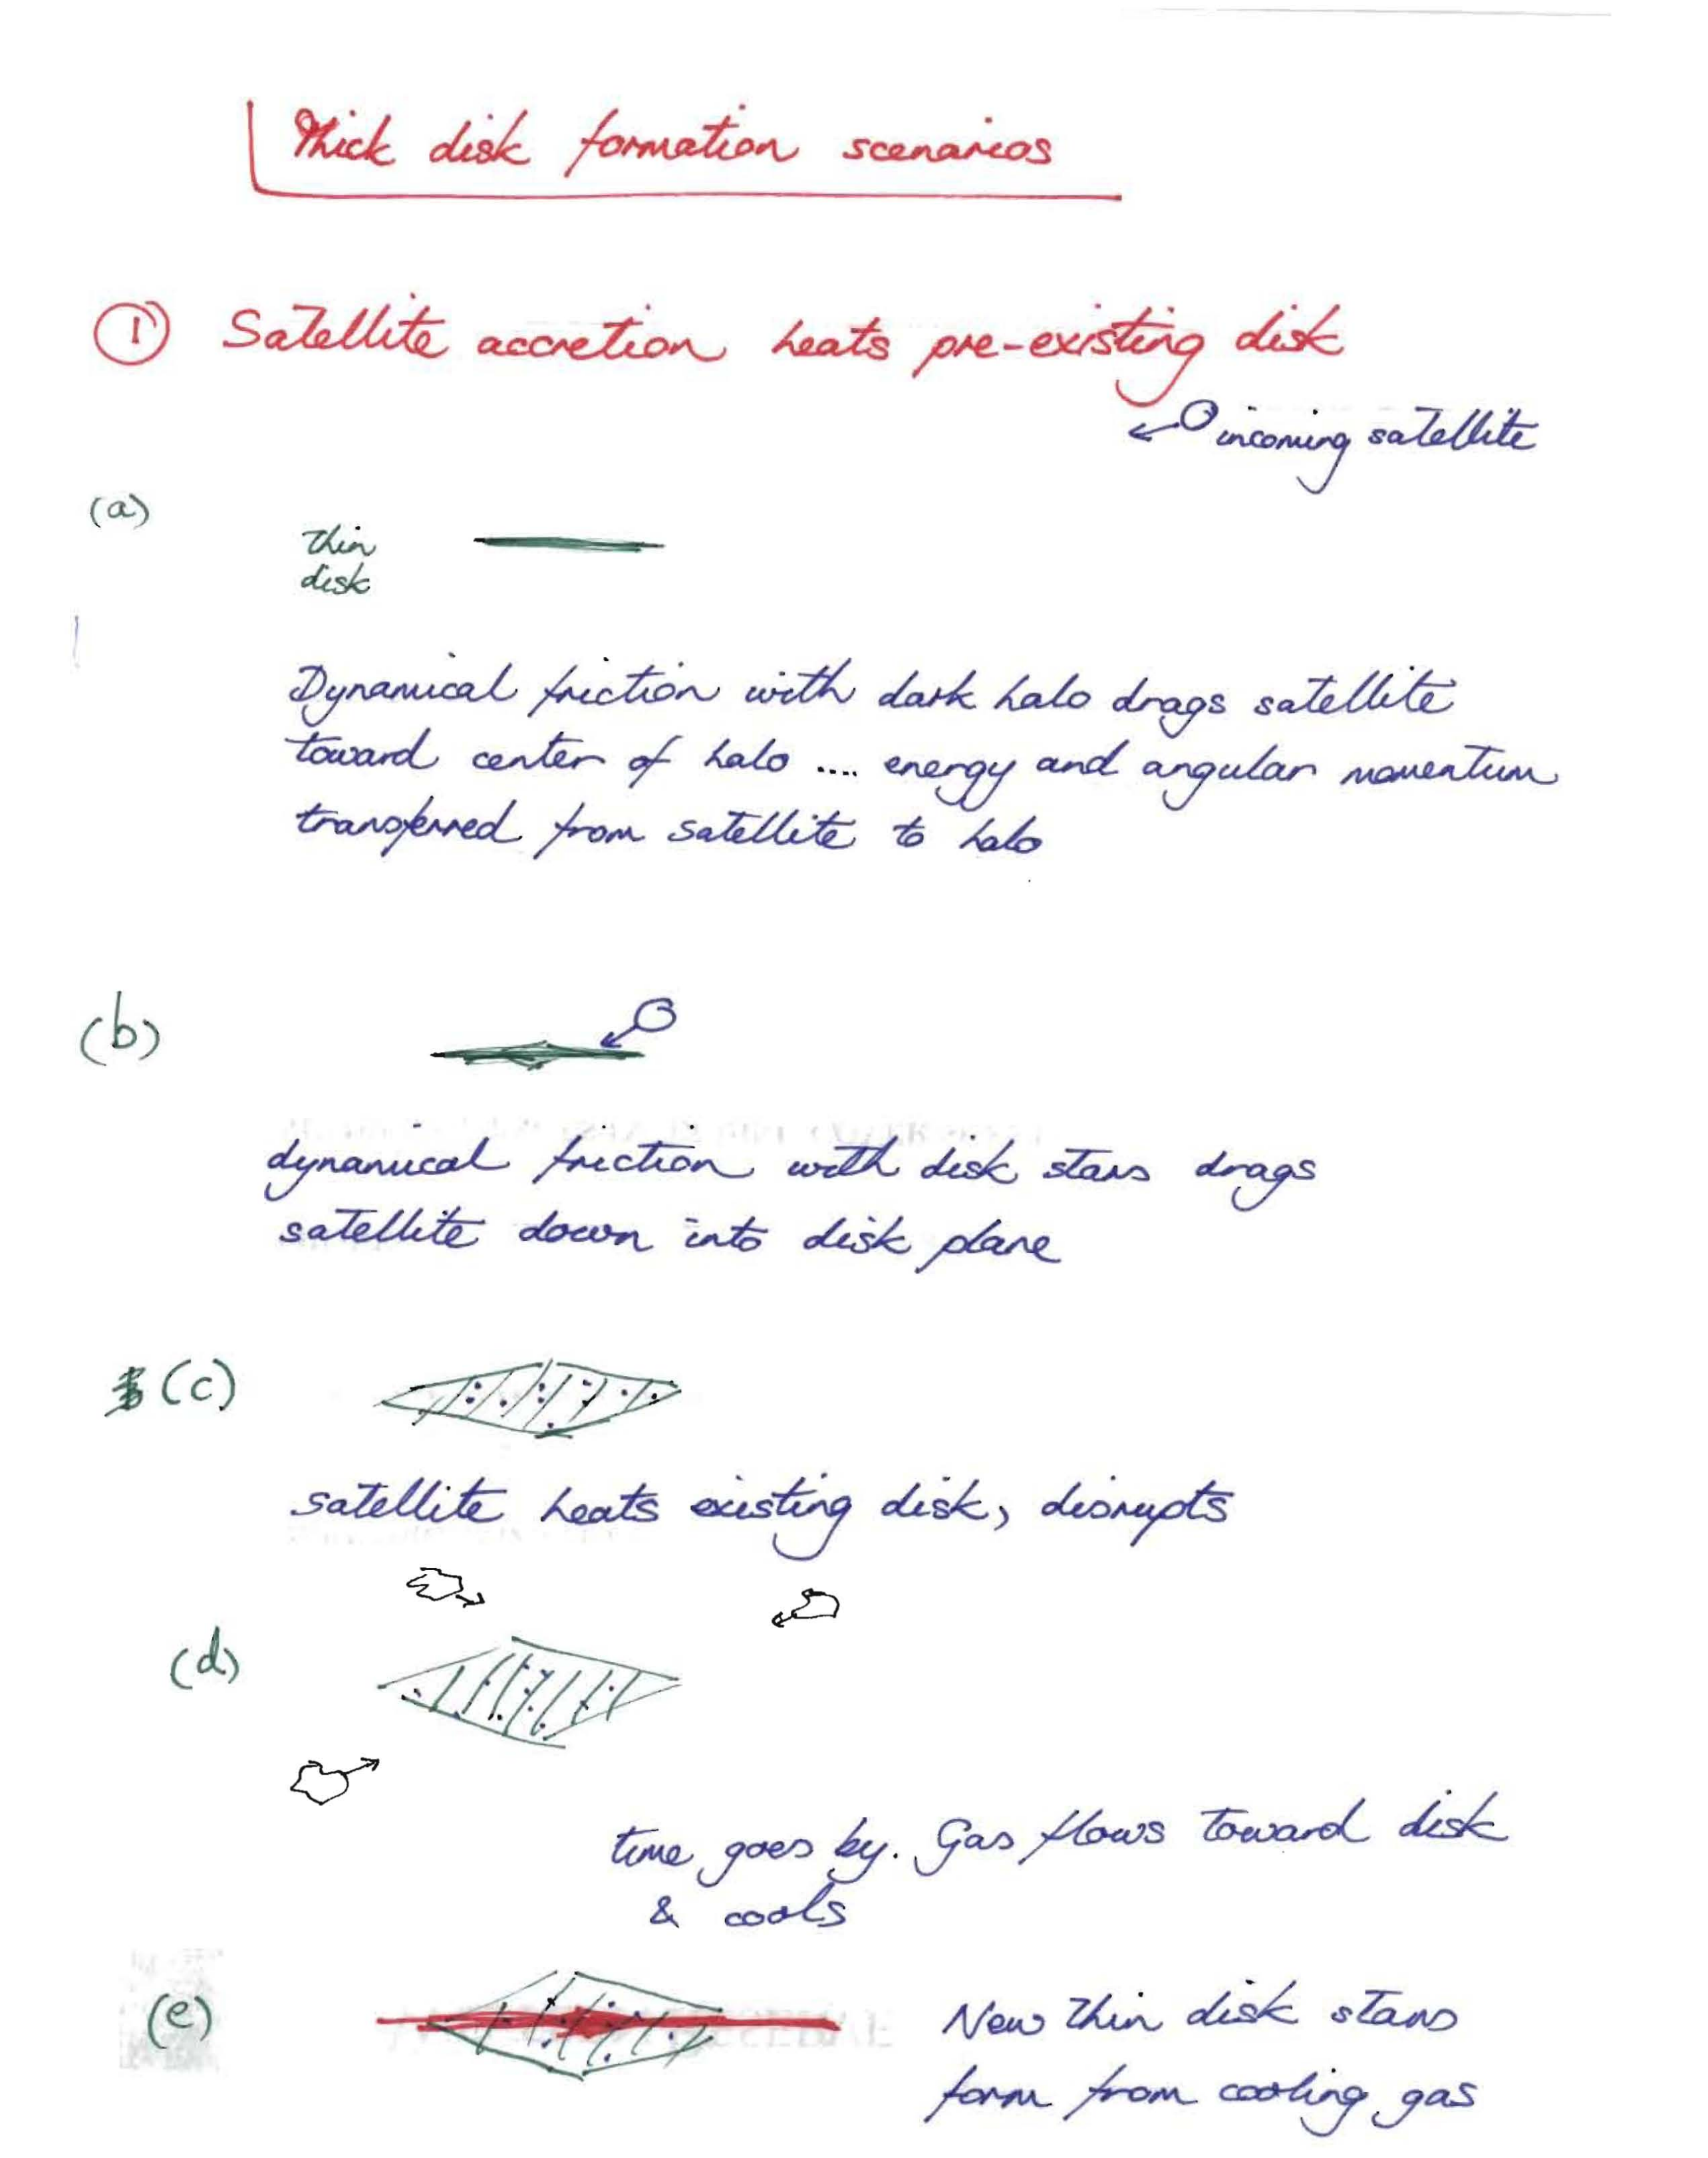 Thick disk formation scenarios
① Satellite accretion heats pre-existing disk
incoming satellite
(a)
thin
disk
Dynamical friction with dark halo drags satellite
toward center of halo .... energy and angular momentum
transferred from satellite to halo
(b)
dynamical friction with disk stars drags
satellite down into disk plane
(c)
satellite heats existing disk, disrupts
(d)
time goes by. Gas flows toward disk
& cools
(e)
New thin disk stars
form from cooling gas